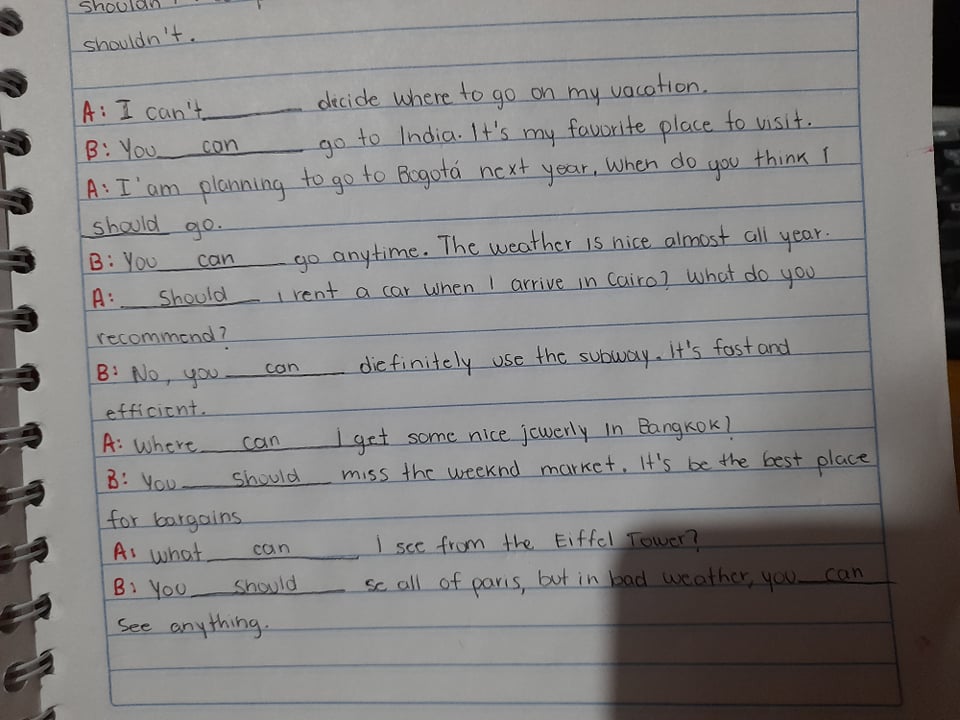 shouldn't.
A: I can't______ decide where to go on my vacation.
B: You can go to India. It's my favorite place to visit.
A: I'am planning to go to Bogotá next year. When do you think I
should go.
B: You can go anytime. The weather is nice almost all year.
A: Should I rent a car when I arrive in Cairo? What do you
recommend?
B: No, you can diefinitely use the subway. It's fast and
efficient.
A: Where can I get some nice jewerly in Bangkok?
B: You should miss the weeknd market. It's be the best place
for bargains
A: what can I see from the Eiffel Tower?
B: You should se all of paris, but in bad weather, you can
see anything.